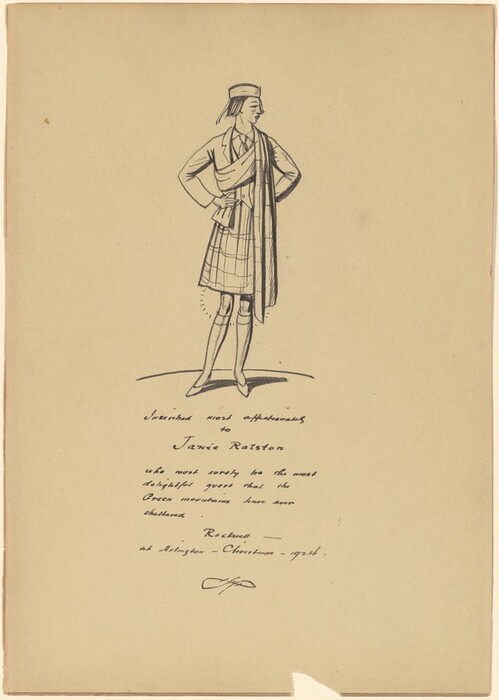 Inscribed most affectionately
to
Janie Ralston
who must surely be the most
delightful guest that the
Green mountains have ever
sheltered.
Rockwell —
at Arlington – Christmas – 1926.